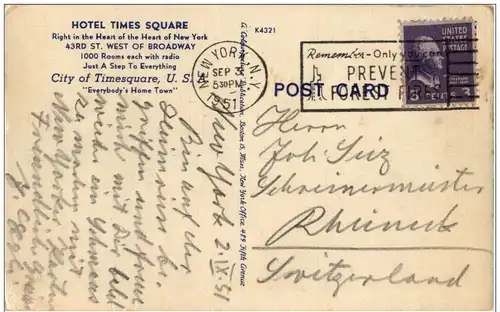 HOTEL TIMES SQUARE
Right in the Heart of the Heart of New York
43RD ST. WEST OF BROADWAY
1000 Rooms each with radio
Just A Step To Everything
City of Timesquare, U. S. A.
"Everybody's Home Town"
K4321
NEW YORK, N.Y.
SEP 3
5:30 PM
1951
Remember - Only you can
PREVENT
FOREST FIRES
UNITED
STATES
POSTAGE
3
POST CARD
New York 2.IX.51
Bin auf der
Heimreise
und freue
mich mit Dir bald
wieder ein
zu machen
New York
Freundlich
Herrn
Joh. Seiz
Schreinermeister
Rheineck
Switzerland